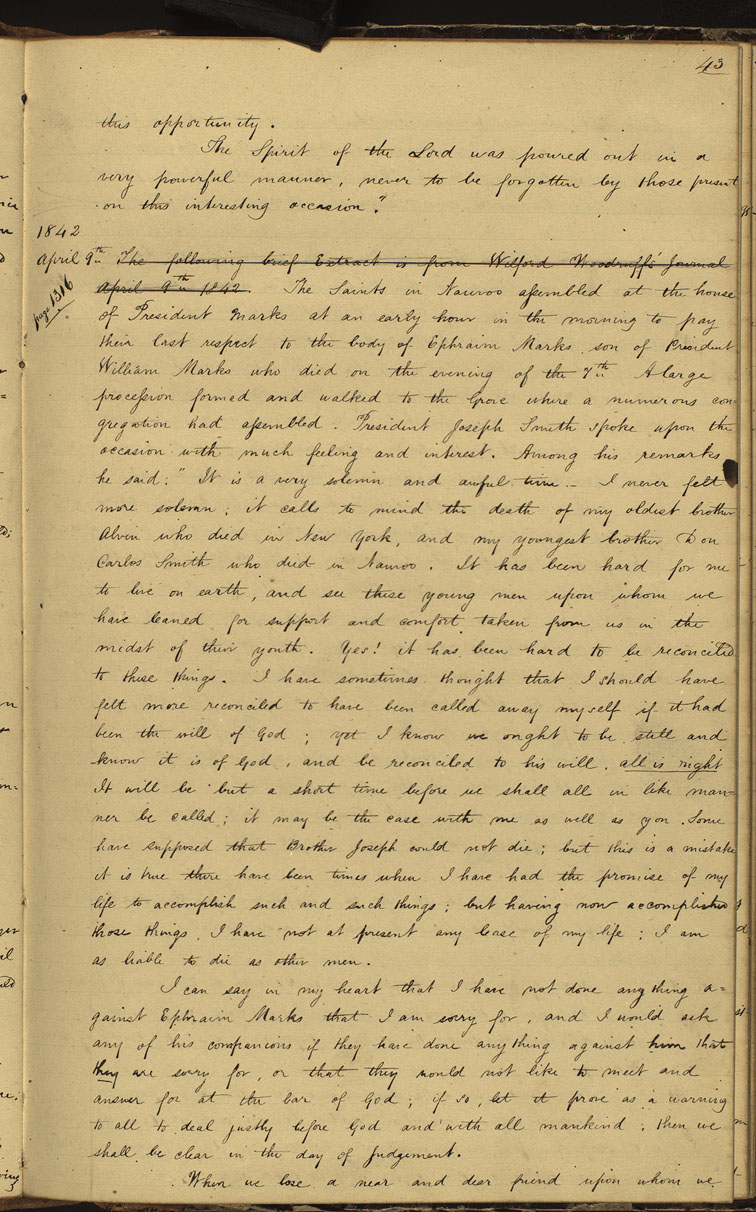 43
this opportunity.
The Spirit of the Lord was poured out in a
very powerful manner, never to be forgotten by those present
on this interesting occasion."
1842
April 9th The following brief Extract is from Wilford Woodruff's Journal
page 1316
April 9th 1842. The Saints in Nauvoo assembled at the house
of President Marks at an early hour in the morning to pay
their last respect to the body of Ephraim Marks, son of President
William Marks who died on the evening of the 7th A large
procession formed and walked to the Grove where a numerous con-
gregation had assembled. President Joseph Smith spoke upon the
occasion with much feeling and interest. Among his remarks
he said: "It is a very solemn and awful time.- I never felt
more solemn; it calls to mind the death of my oldest brother
Alvin who died in New York, and my youngest brother Don
Carlos Smith who died in Nauvoo. It has been hard for me
to live on earth, and see these young men upon whom we
have leaned for support and comfort taken from us in the
midst of their youth. Yes! it has been hard to be reconciled
to these things. I have sometimes thought that I should have
felt more reconciled to have been called away myself if it had
been the will of God; yet I know we ought to be still and
know it is of God, and be reconciled to his will, all is right
It will be but a short time before we shall all in like man=
ner be called; it may be the case with me as well as you. Some
have supposed that Brother Joseph could not die; but this is a mistake
it is true there have been times when I have had the promise of my
life to accomplish such and such things; but having now accomplished
those things, I have not at present any lease of my life; I am
as liable to die as other men.
I can say in my heart that I have not done any thing a=
gainst Ephraim Marks that I am sorry for, and I would ask
any of his companions if they have done any thing against him that
they are sorry for, or that they would not like to meet and
answer for at the bar of God; if so, let it prove as a warning
to all to deal justly before God and with all mankind; then we
shall be clear in the day of Judgement.
When we lose a near and dear friend upon whom we